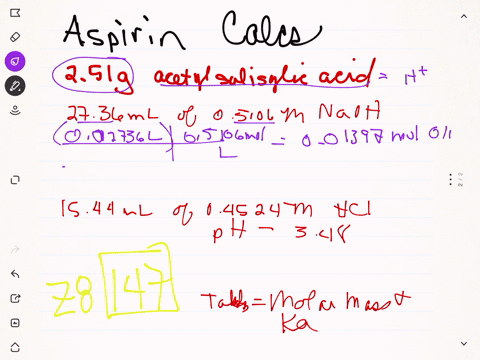 Aspirin Calcs
2.51g acetylsalisylic acid = H+
27.36mL of 0.5106 M NaOH
(0.02736L) 0.5106mol = 0.01397 mol OH
L
15.44 mL of 0.4524 M HCl
pH - 3.48
Z8 147
= Molar Mass &
Ka